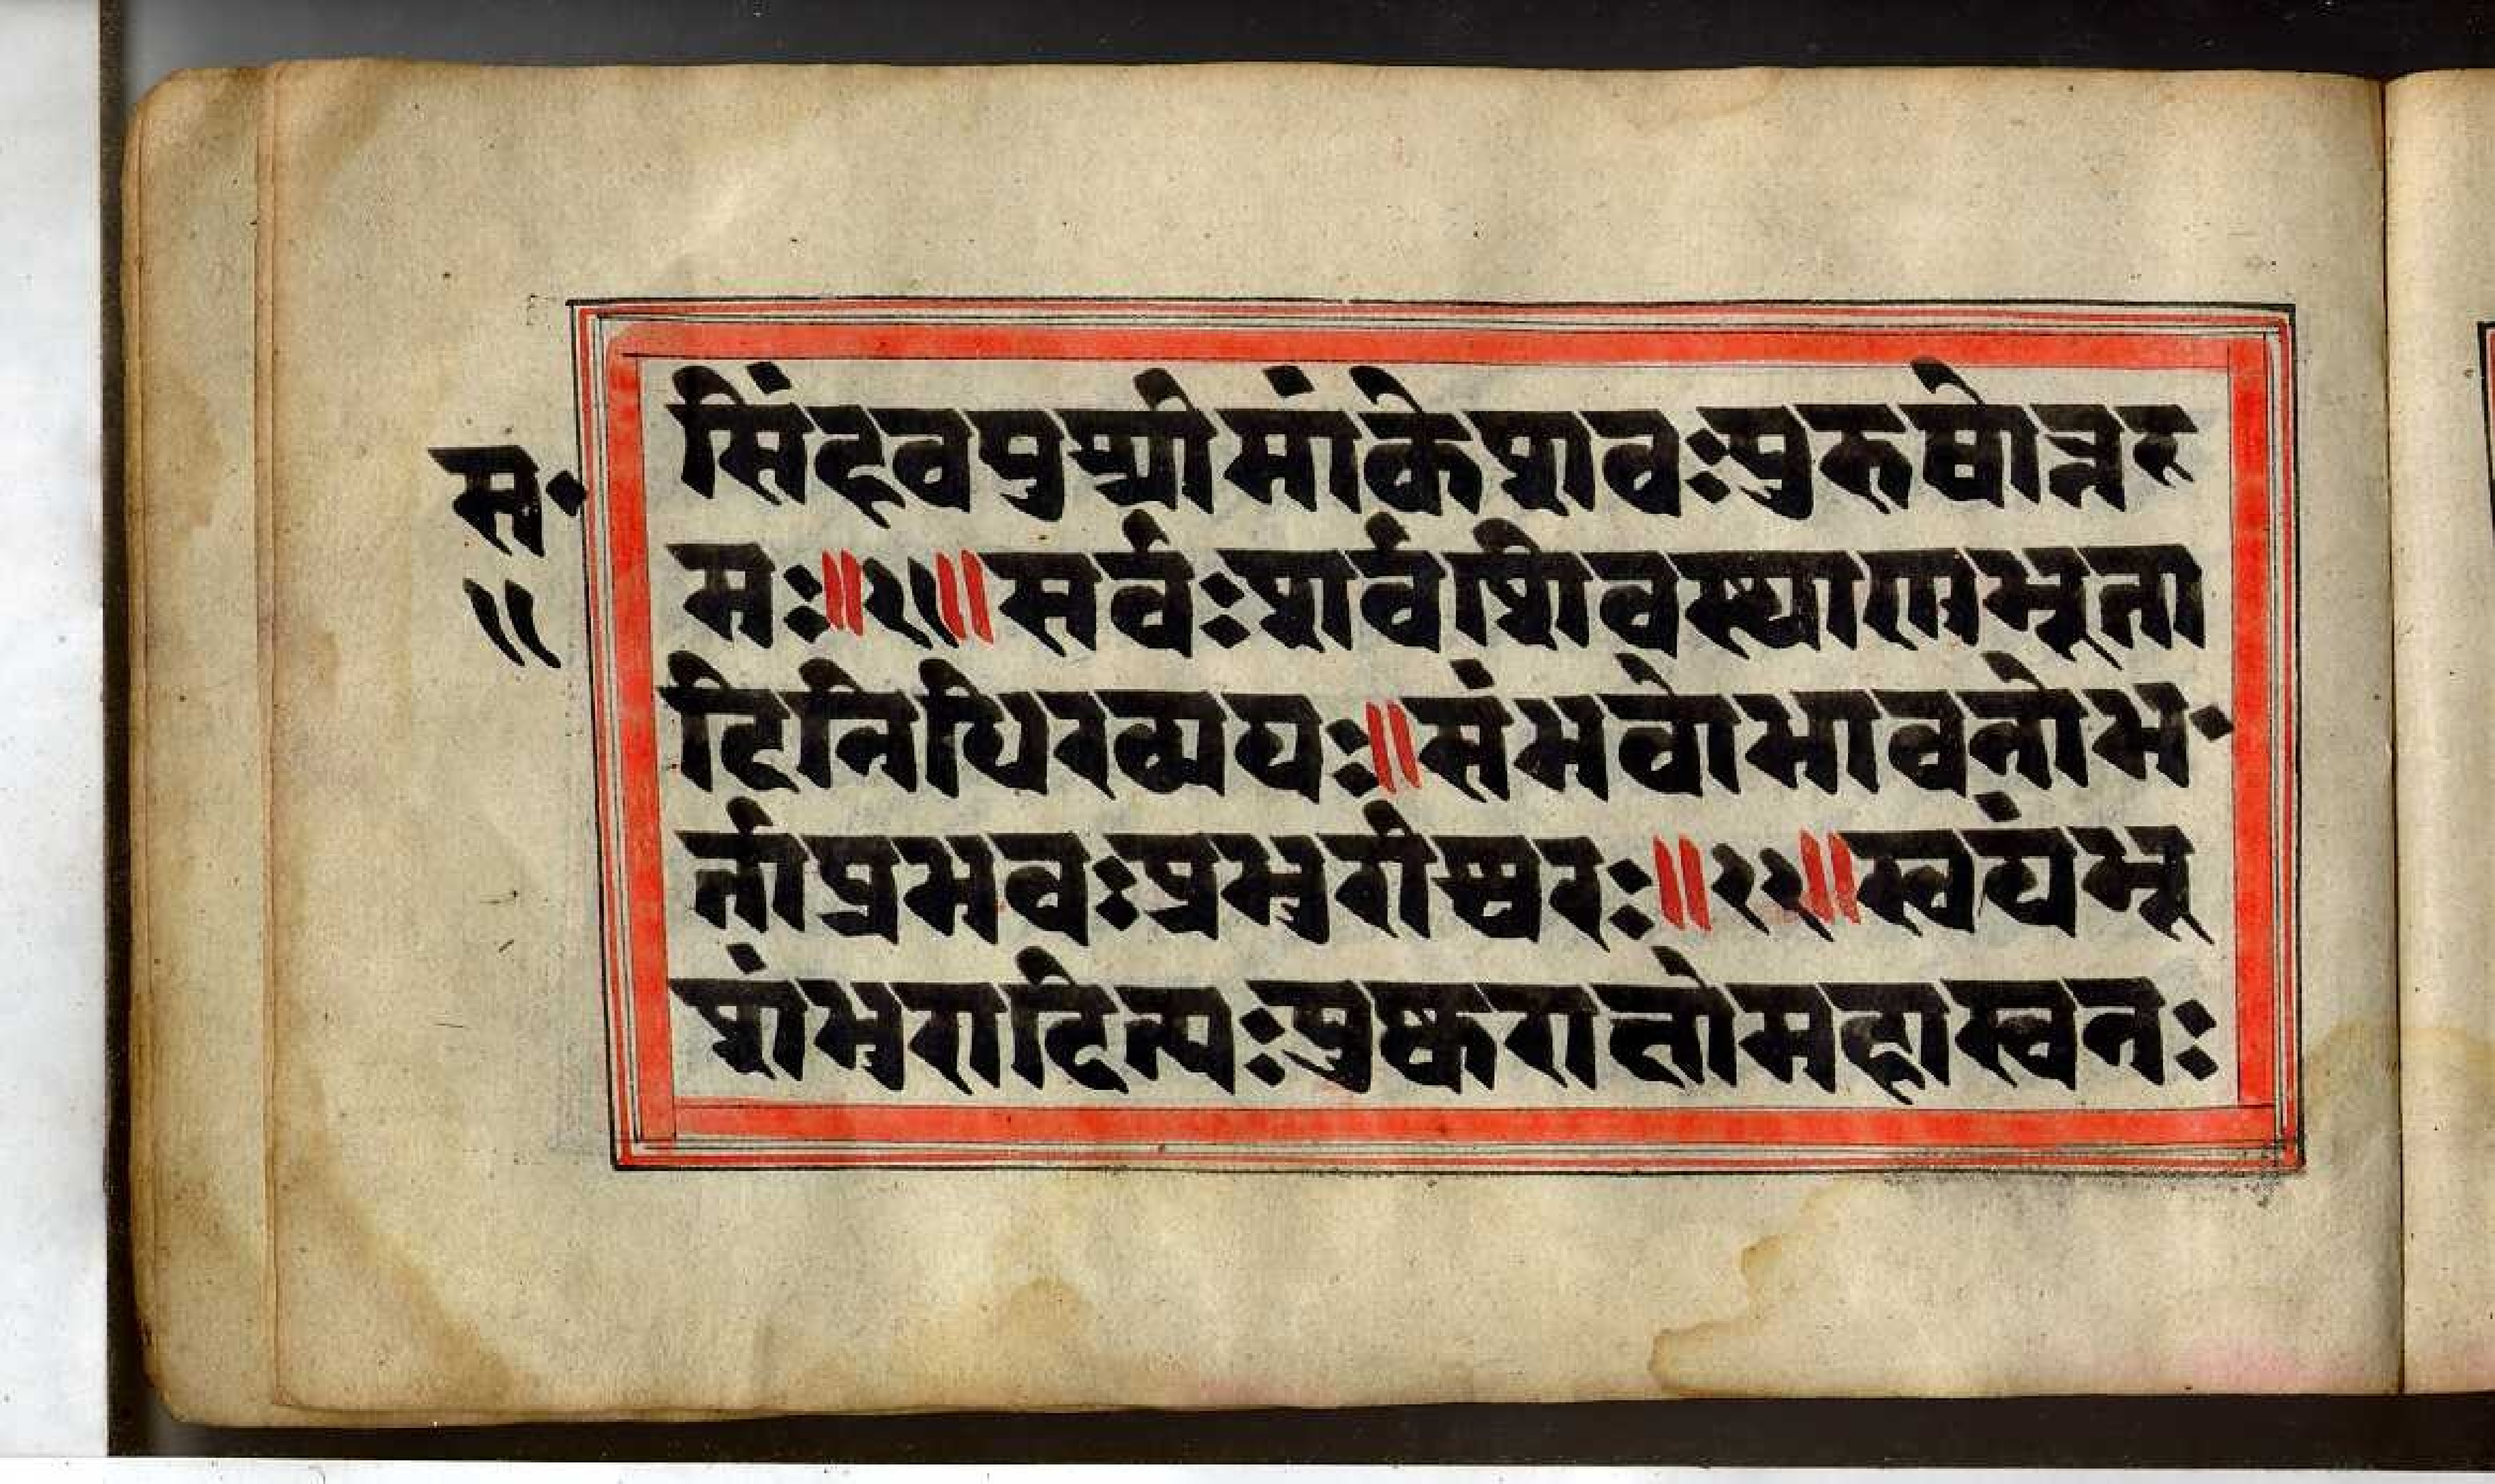 स॰
॥
सिंहवपुश्रीमांकेशवःपुरुषोत्तर
मः॥२१॥सर्वःशर्वशिवस्थाणुभूता
दिनिधिरव्ययः॥संभवोभावनोभ॰
र्ताप्रभवःप्रभुरीश्वरः॥२२॥स्वयंभू
शंभुरादित्यःपुष्कराक्षोमहास्वनः